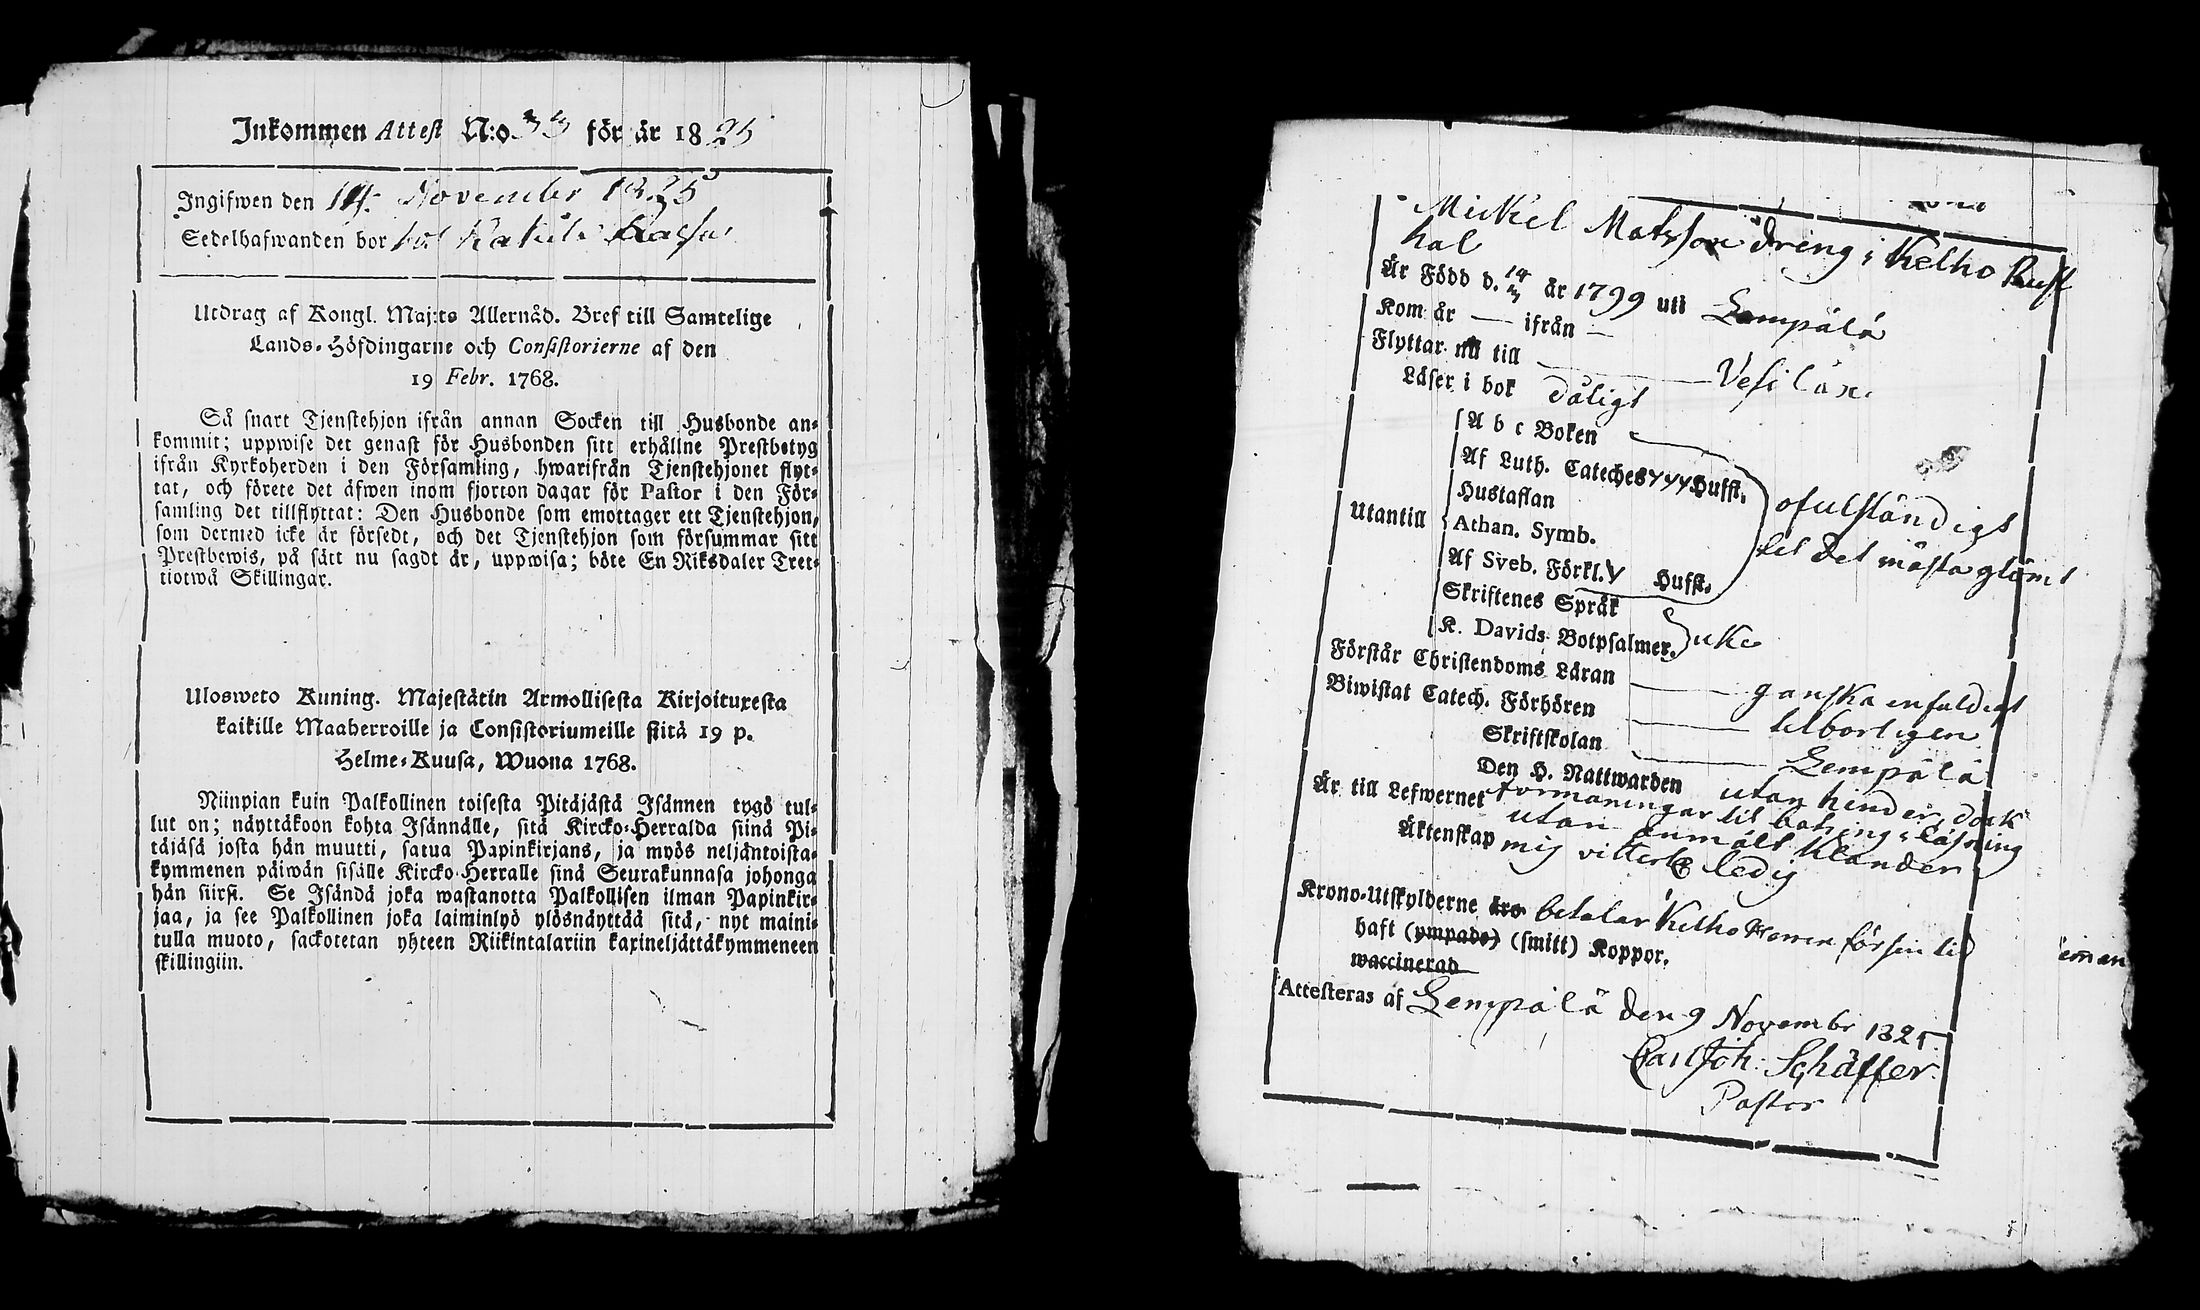 Inkommen Attest N:o 33 för år 1825
Ingifwen den 14. November 1825
Sedelhafwanden bor
Utdrag af Kongl. Maj:ts Allernåd. Bref till Samtelige
Lands-Höfdingarne och Consistorierne af den
19 Febr. 1768.
Så snart Tjenstehjon ifrån annan Socken till Husbonde an-
kommit; uppwise det genast för Husbonden sitt erhållne Prestbetyg
ifrån Kyrkoherden i den Församling, hwarifrån Tjenstehjonet flyt-
tat, och förete det äfwen inom fjorton dagar för Pastor i den För-
samling det tillflyttat: Den Husbonde som emottager ett Tjenstehjon,
som dermed icke är försedt, och det Tjenstehjon som försummar sitt
Prestbewis, på sätt nu sagdt är, uppwisa; böte En Riksdaler Tret-
tiotwå Skillingar.
Ulosweto Kuning. Majestätin Armollisesta Kirjoituxesta
kaikille Maaherroille ja Consistoriumeille siitä 19 p.
Helme-Kuusa, Wuona 1768.
Niinpian kuin Palkollinen toisesta Pitäjästä Isännen tygö tul-
lut on; näyttäkoon kohta Isännälle, sitä Kircko-Herralda siinä Pi-
täjäsä josta hän muutti, satua Papinkirjans, ja myös neljäntoista-
kymmenen päiwän sisälle Kircko-Herralle sinä Seurakunnasa johonga
hän siirsi. Se Isändä joka wastanotta Palkollisen ilman Papinkir-
jaa, ja see Palkollinen joka laiminlyö ylösnäyttää sitä, nyt maini-
tulla muoto, sackotetan yhteen Riikintalariin kaxineljättäkymmeneen
skillingiin.
Mickel Matsson dreng i Kelho Rust
hal
Är Född d. 14/3 år 1799 uti Lempälä
Kom år — ifrån —
Flyttar nu till — Vesilax.
Läser i bok dåligt
Utantill
A b c Boken
Af Luth. Cateches Hufst.
Hustaflan
Athan. Symb.
Af Sveb. Förkl. Hufst.
ofulständigt
til det mästa glömt
Skriftenes Språk
K. Davids Botpsalmer. icke
Förstår Christendoms Läran — ganska enfaldigt
Biwistat Catech. Förhören — tilbörligen
Skriftskolan — Lempälä
Den H. Nattwarden utan hinder, dock
Är till Lefwernet förmaningar til bätring i läsning
utan anmält klander
Äktenskap mig vitterl. ledig
Krono-Utskylderne äro betalar Kelho för sin tid
haft (ympade) (smitt) Koppor.
waccinerad
Attesteras af Lempälä den 9 Novembr 1825
Carl Joh. Schäffer
Pastor